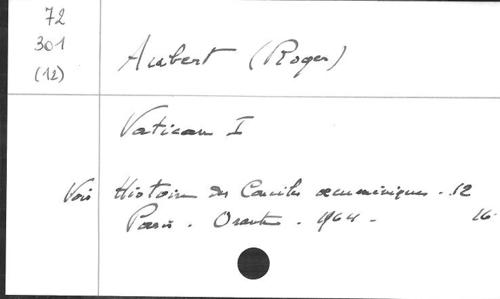 72
301
(12)
Aubert (Roger)
Vatican I
Voir Histoire des Conciles œcuméniques - 12
Paris. Orante. 1964 - 16.